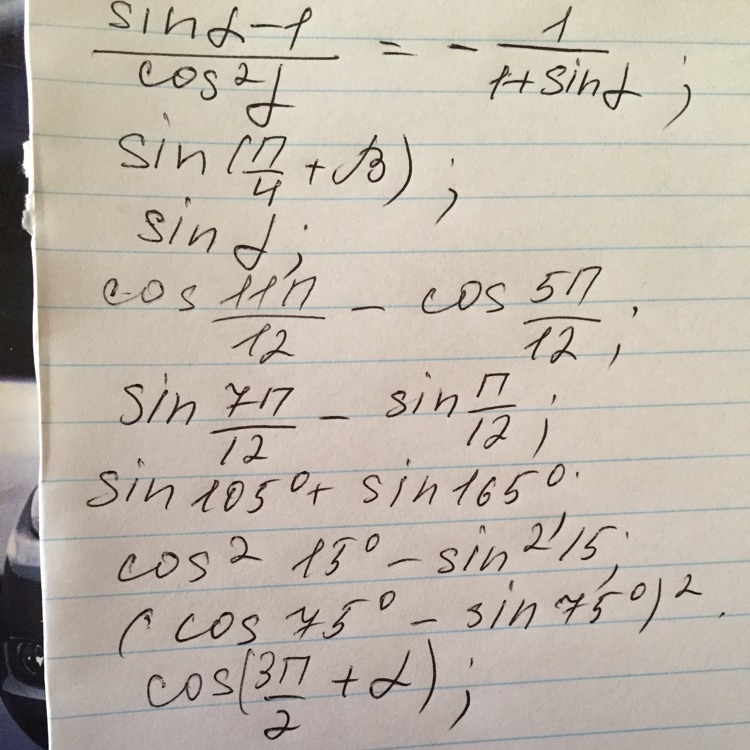 (sinα-1)/(cos²α) = - 1/(1+sinα) ;
sin(π/4 + β) ;
sinα;
cos 11π/12 - cos 5π/12 ;
sin 7π/12 - sin π/12 ;
sin105°+ sin165°;
cos² 15° - sin²15;
(cos 75° - sin75°)².
cos(3π/2 + α) ;